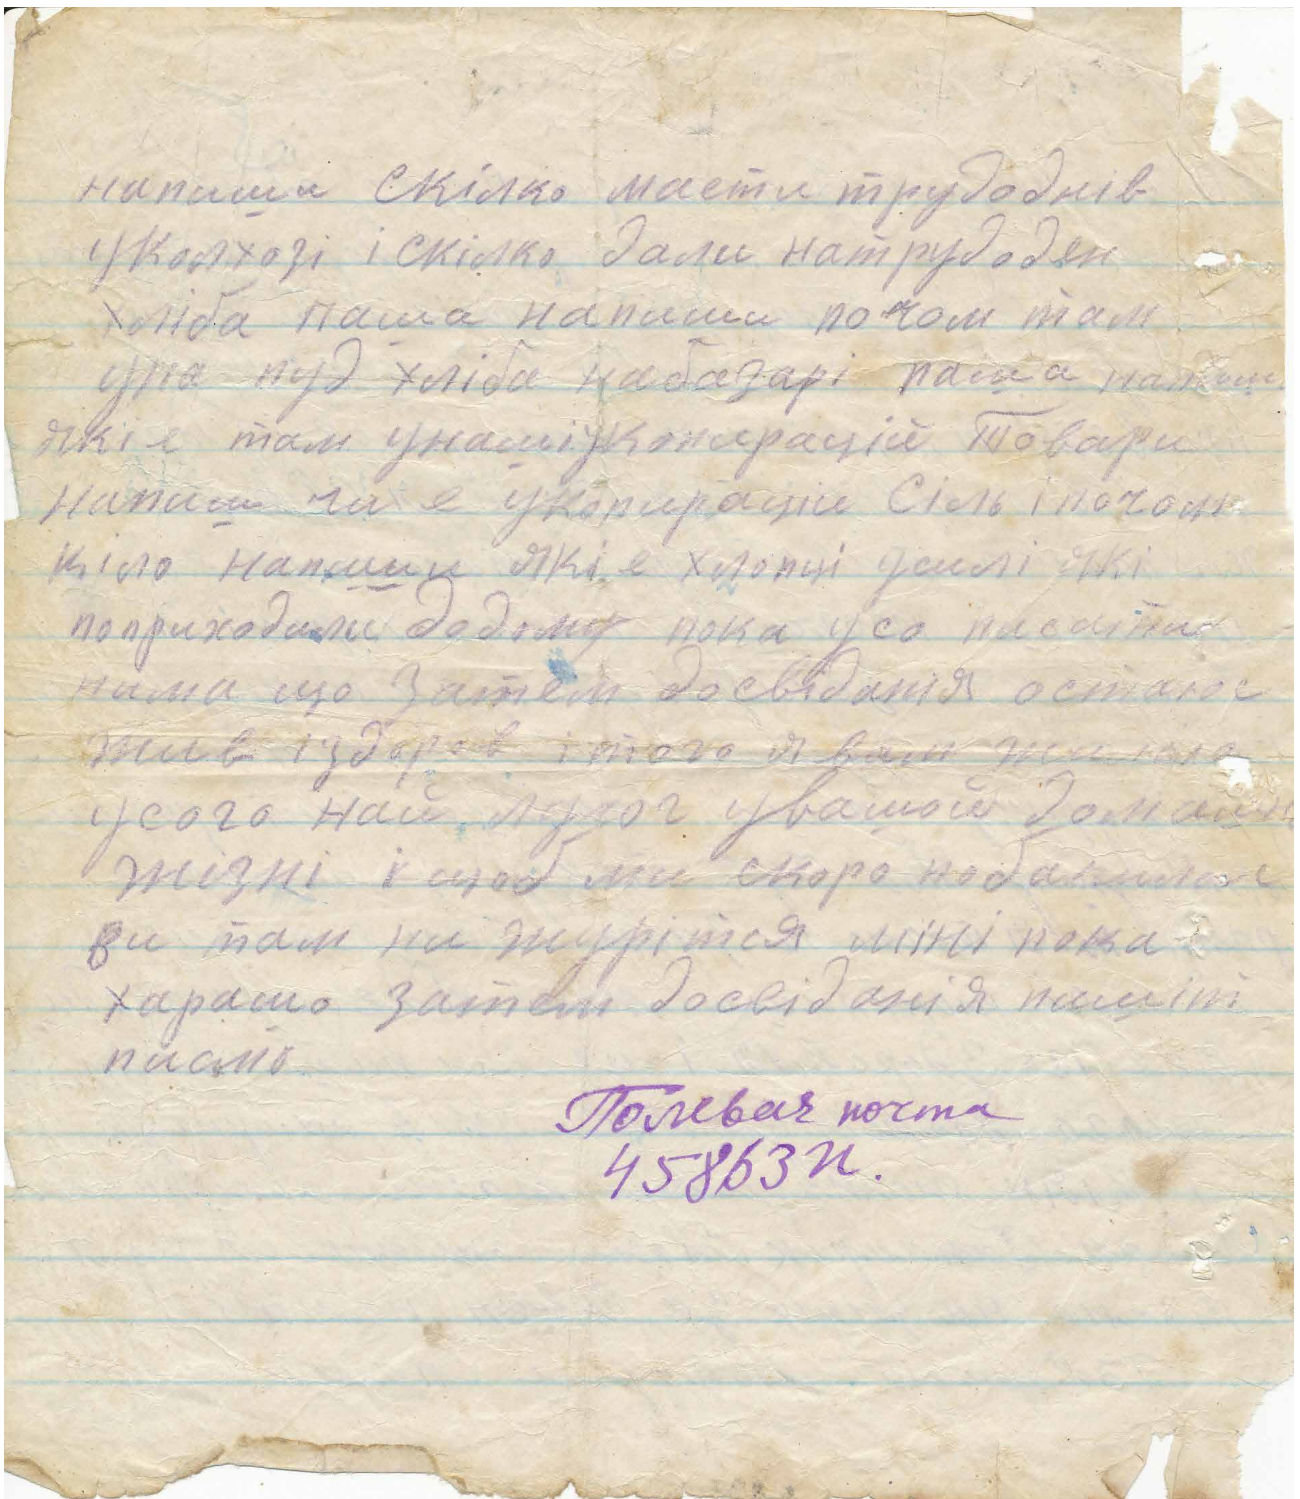 напиши скілко маєти трудоднів
уколхозі і скілко дали натрудоден
хліба паша напиши почом там
упа пуд хліба набазарі паша напиши
які е там унашіукопирацій товари
напиши чи е укопирации Сіль і почом
кіло напиши які е хлопці уселі які
поприходили додому пока усо писати
нима що затем досвіданія остаюс
жив іздоров і того я вам жилаю
усого най лучог увашой домашн
жізні і щоб ми скоро побачилис
ви там ни журітся міні пока
харашо затем досвіданія пишіт
писмо
Полевая почта
45863 И.